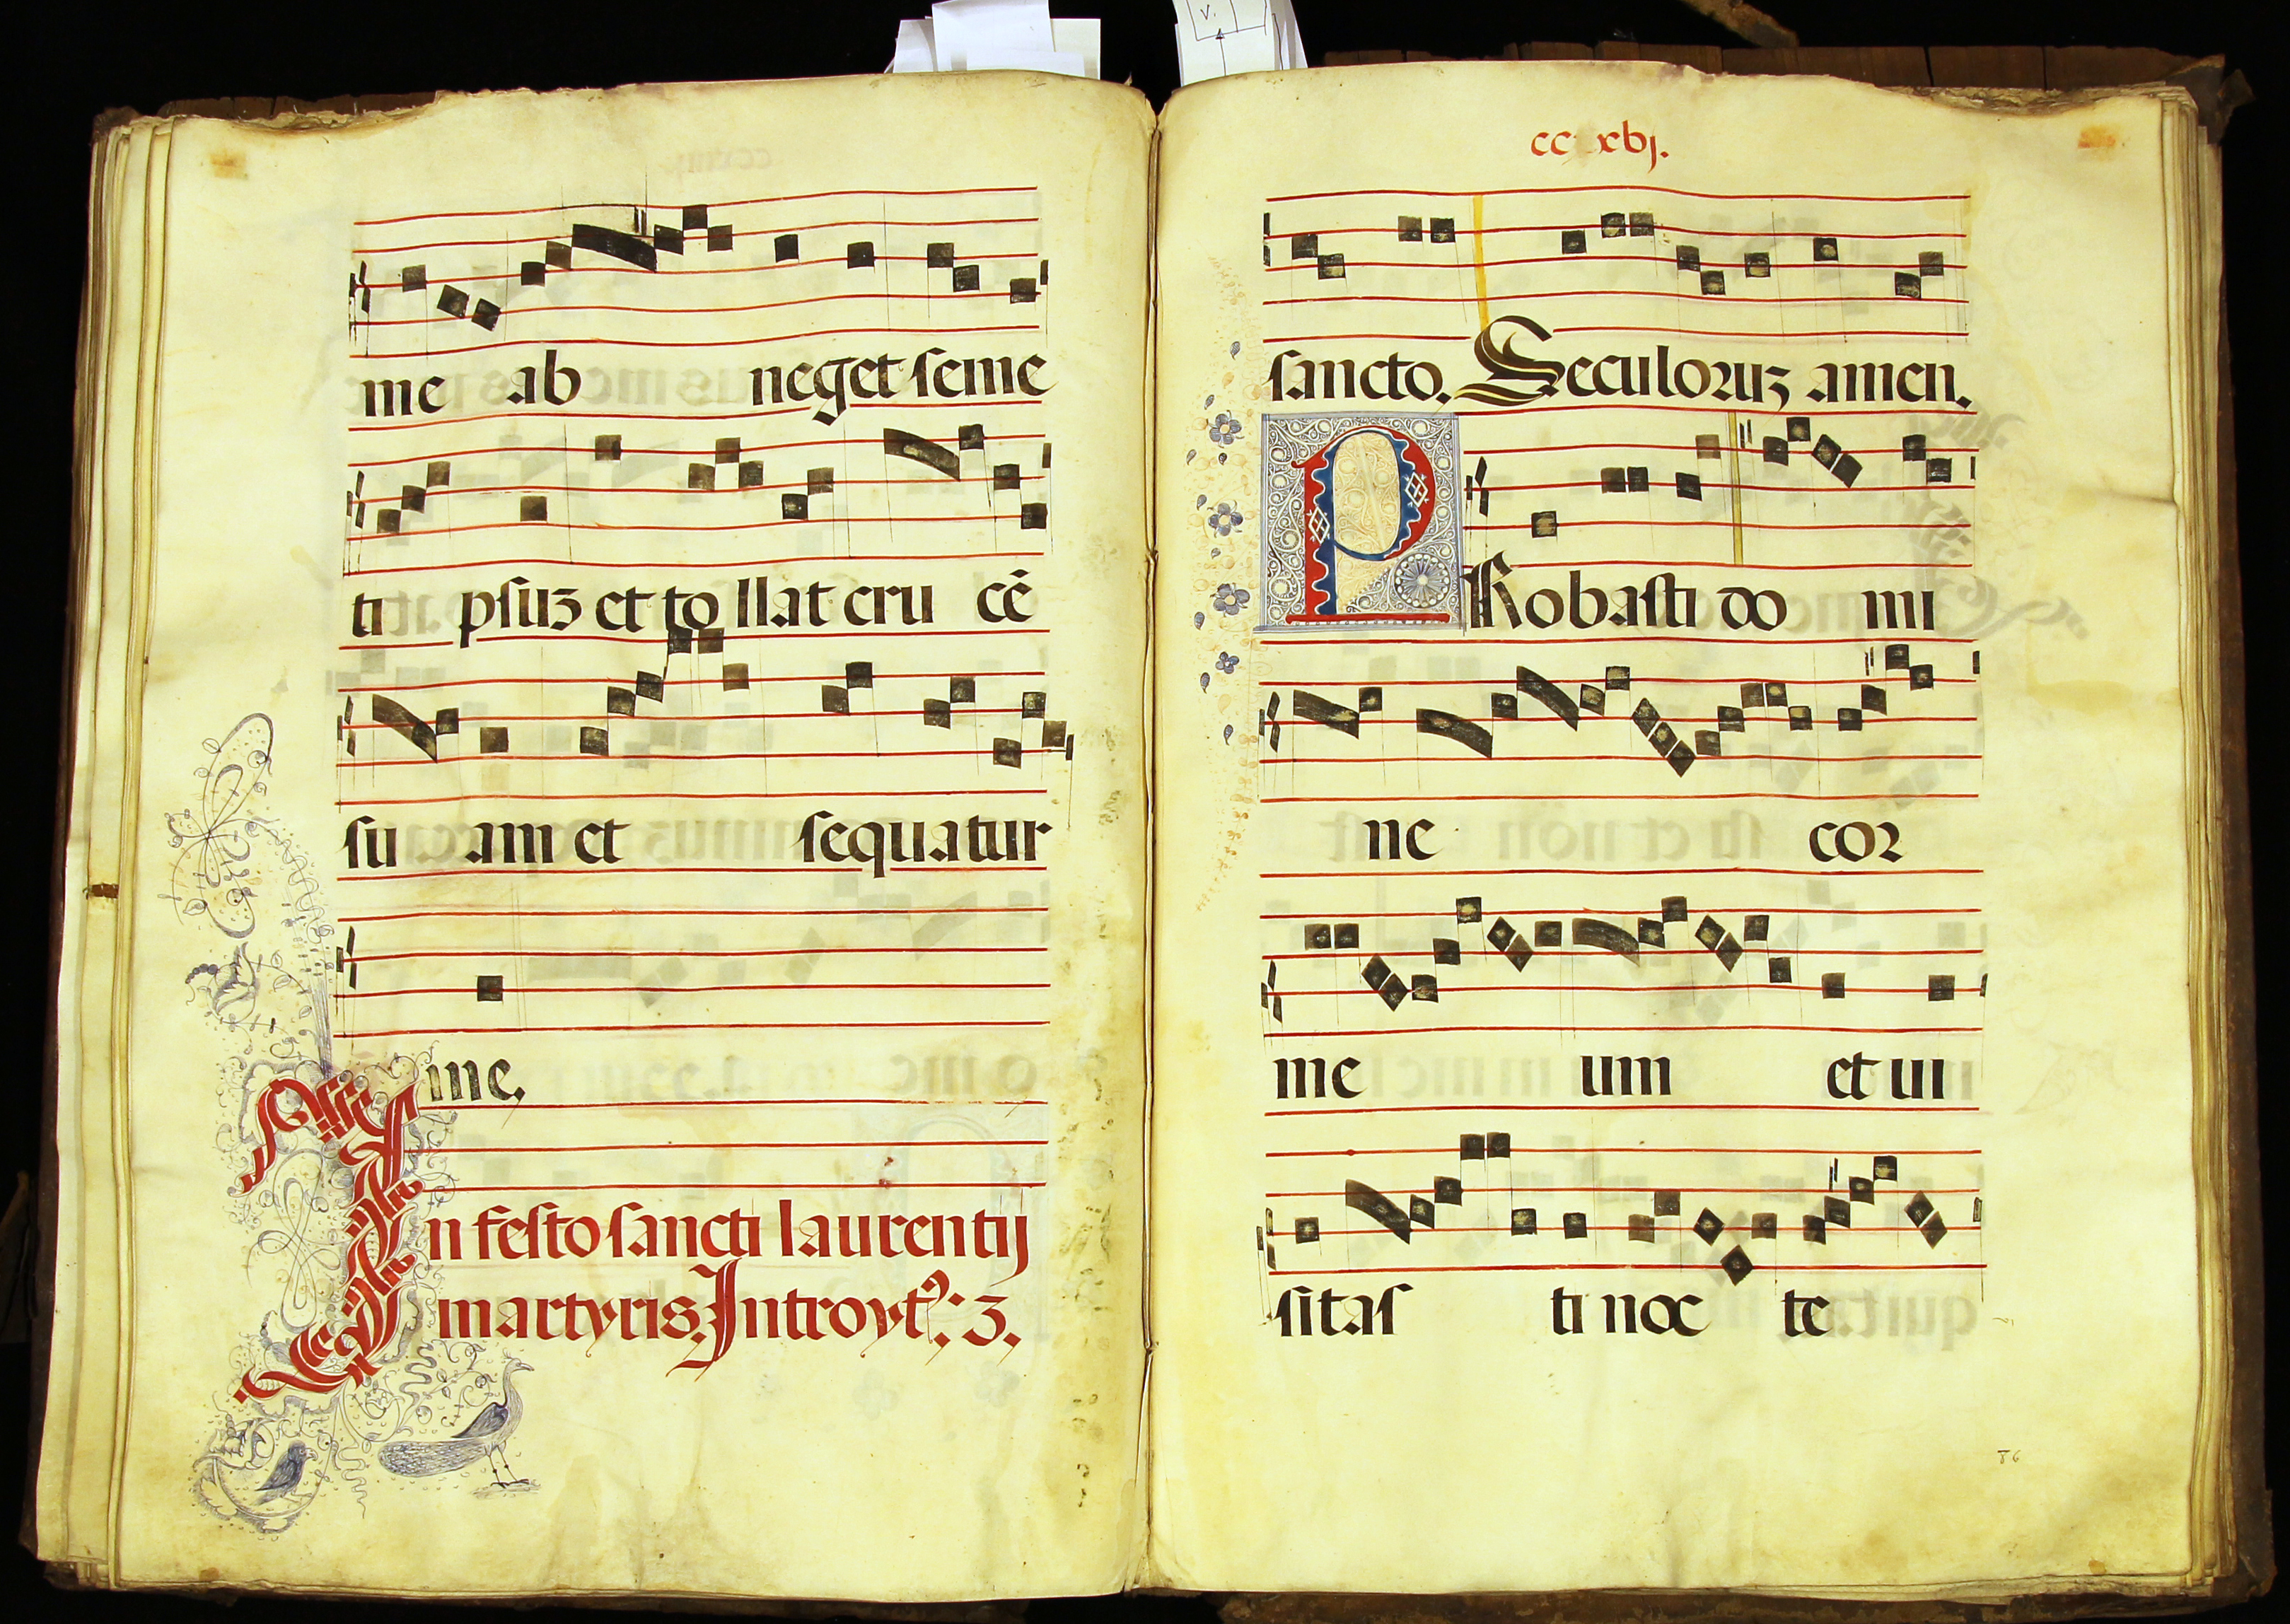 me ab neget seme
ti psuz et to llat cru cē
su am et sequatur
me.
In festo sancti laurentij
martyris. Introyt9: 3.
v.
sancto. Seculoruz amen.
PRobasti do mi
ne cor
me um et ui
sitas ti noc te
86